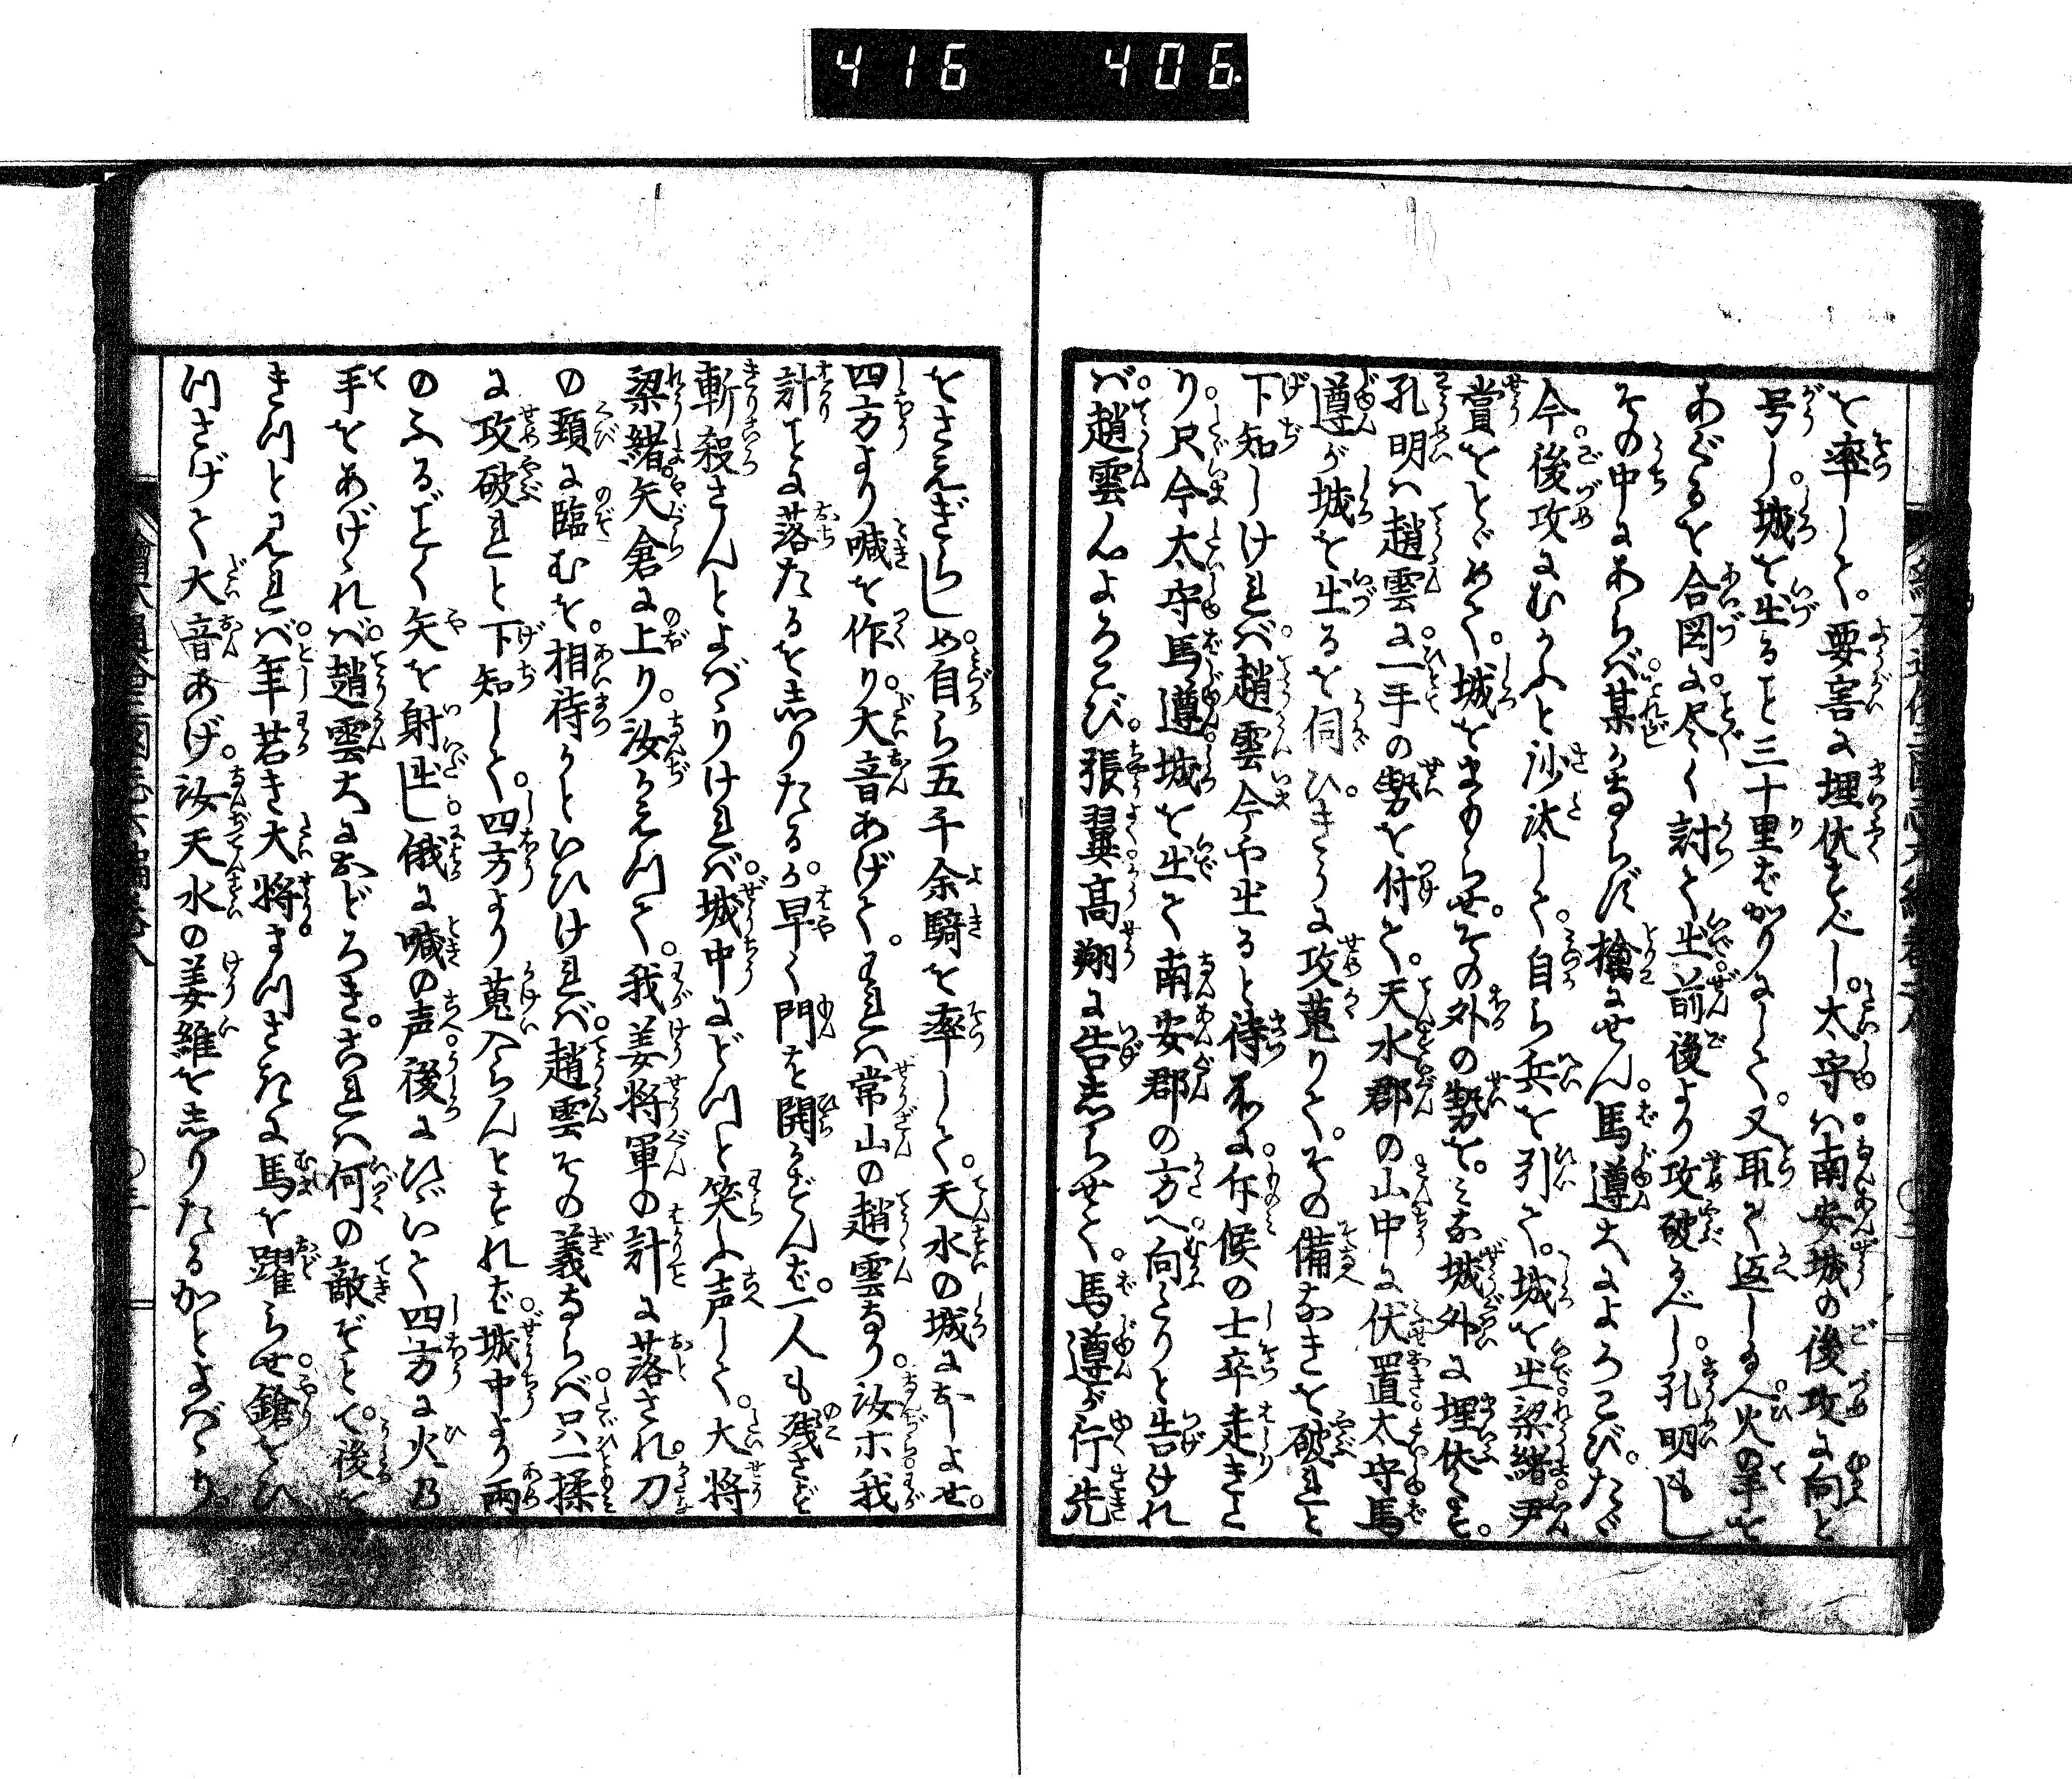 416 406.
を率して。要害に埋伏すべし。太守ハ南安城の後攻に向と
号し。城を出ること三十里ばかりにして。又取て返し給へ火の手を
あぐるを合図に尽く討て出前後より攻破るべし。孔明もし
その中にあらバ某かならず擒にせん。馬遵大によろこび。たゞ
今。後攻にむかふと沙汰して。自ら兵を引て。城を出梁緒尹
賞をとゞめて。城をまもらせ。その外の勢を。みな城外に埋伏す。
孔明ハ趙雲に。一手の勢を付て。天水郡の山中に伏置太守馬
遵が城を出るを伺ひ。きうに攻蒐りて。その備なきを破れと
下知しけれバ。趙雲今や出ると待ゐに。斥候の士卒走きた
り。只今太守馬遵。城を出て南安郡の方へ向へりと告けれ
バ。趙雲心よろこび。張翼高翔に告しらせて。馬遵が行先
をさえぎらしめ。自ら五千余騎を率して。天水の城におしよせ。
四方より喊を作り。大音あげて。われハ常山の趙雲なり。汝ホ我
計ことに落たるをしりたるか。早く門を開かずんバ。一人も残さず
斬殺さんとよバゝりけれバ。城中にどつと笑ふ声して。大将
梁緒。矢倉に上り。汝かえつて。我姜将軍の計に落され。刀
の頚に臨むを。相待かといひけれバ。趙雲その義ならバ。只一揉
に攻破れと下知して。四方より蒐入らんとすれバ。城中より雨
のふるごとく矢を射出し。俄に喊の声後にひゞいて四方に火の
手をあげゝれバ。趙雲大におどろき。これハ何の敵ぞとて。後を
きつと見れバ。年若き大将。まつさきに馬を躍らせ。鎗をひ
つさげて大音あげ。汝天水の姜維をしりたるかとよバゝり